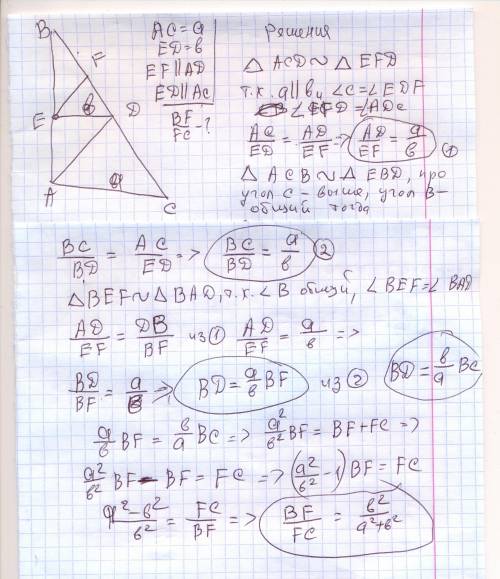 B
F
в
E
D
а
A
C
AC = а
ED = в
EF || AD
ED || AC
BF/FC - ?
Решения
△ ACD ∾ △ EFD
т.к. а || в и ∠C = ∠EDF
∠EFD = ∠ADC
AC/ED = AD/EF => AD/EF = а/в ①
△ ACB ∾ △ EBD, про
угол C - выше, угол B -
общий тогда
BC/BD = AC/ED => BC/BD = а/в ②
△BEF ∾ △BAD, т.к. ∠B общий, ∠BEF = ∠BAD
AD/EF = DB/BF из ① AD/EF = а/в =>
BD/BF = а/в => BD = а/в BF из ② BD = в/а BC
а/в BF = в/а BC => а²/в² BF = BF + FC =>
а²/в² BF - BF = FC => (а²/в² - 1) BF = FC
а² - в²/в² = FC/BF => BF/FC = в²/а² + в²